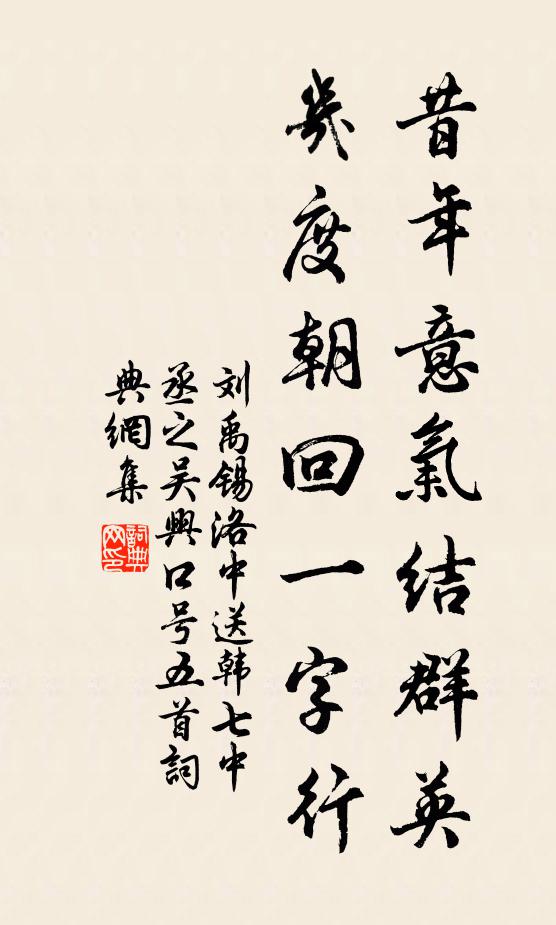 昔年意氣結群英
幾度朝回一字行
刘禹锡洛中送韩七中
丞之吴興口号五首詞
典網集
詞典
网印